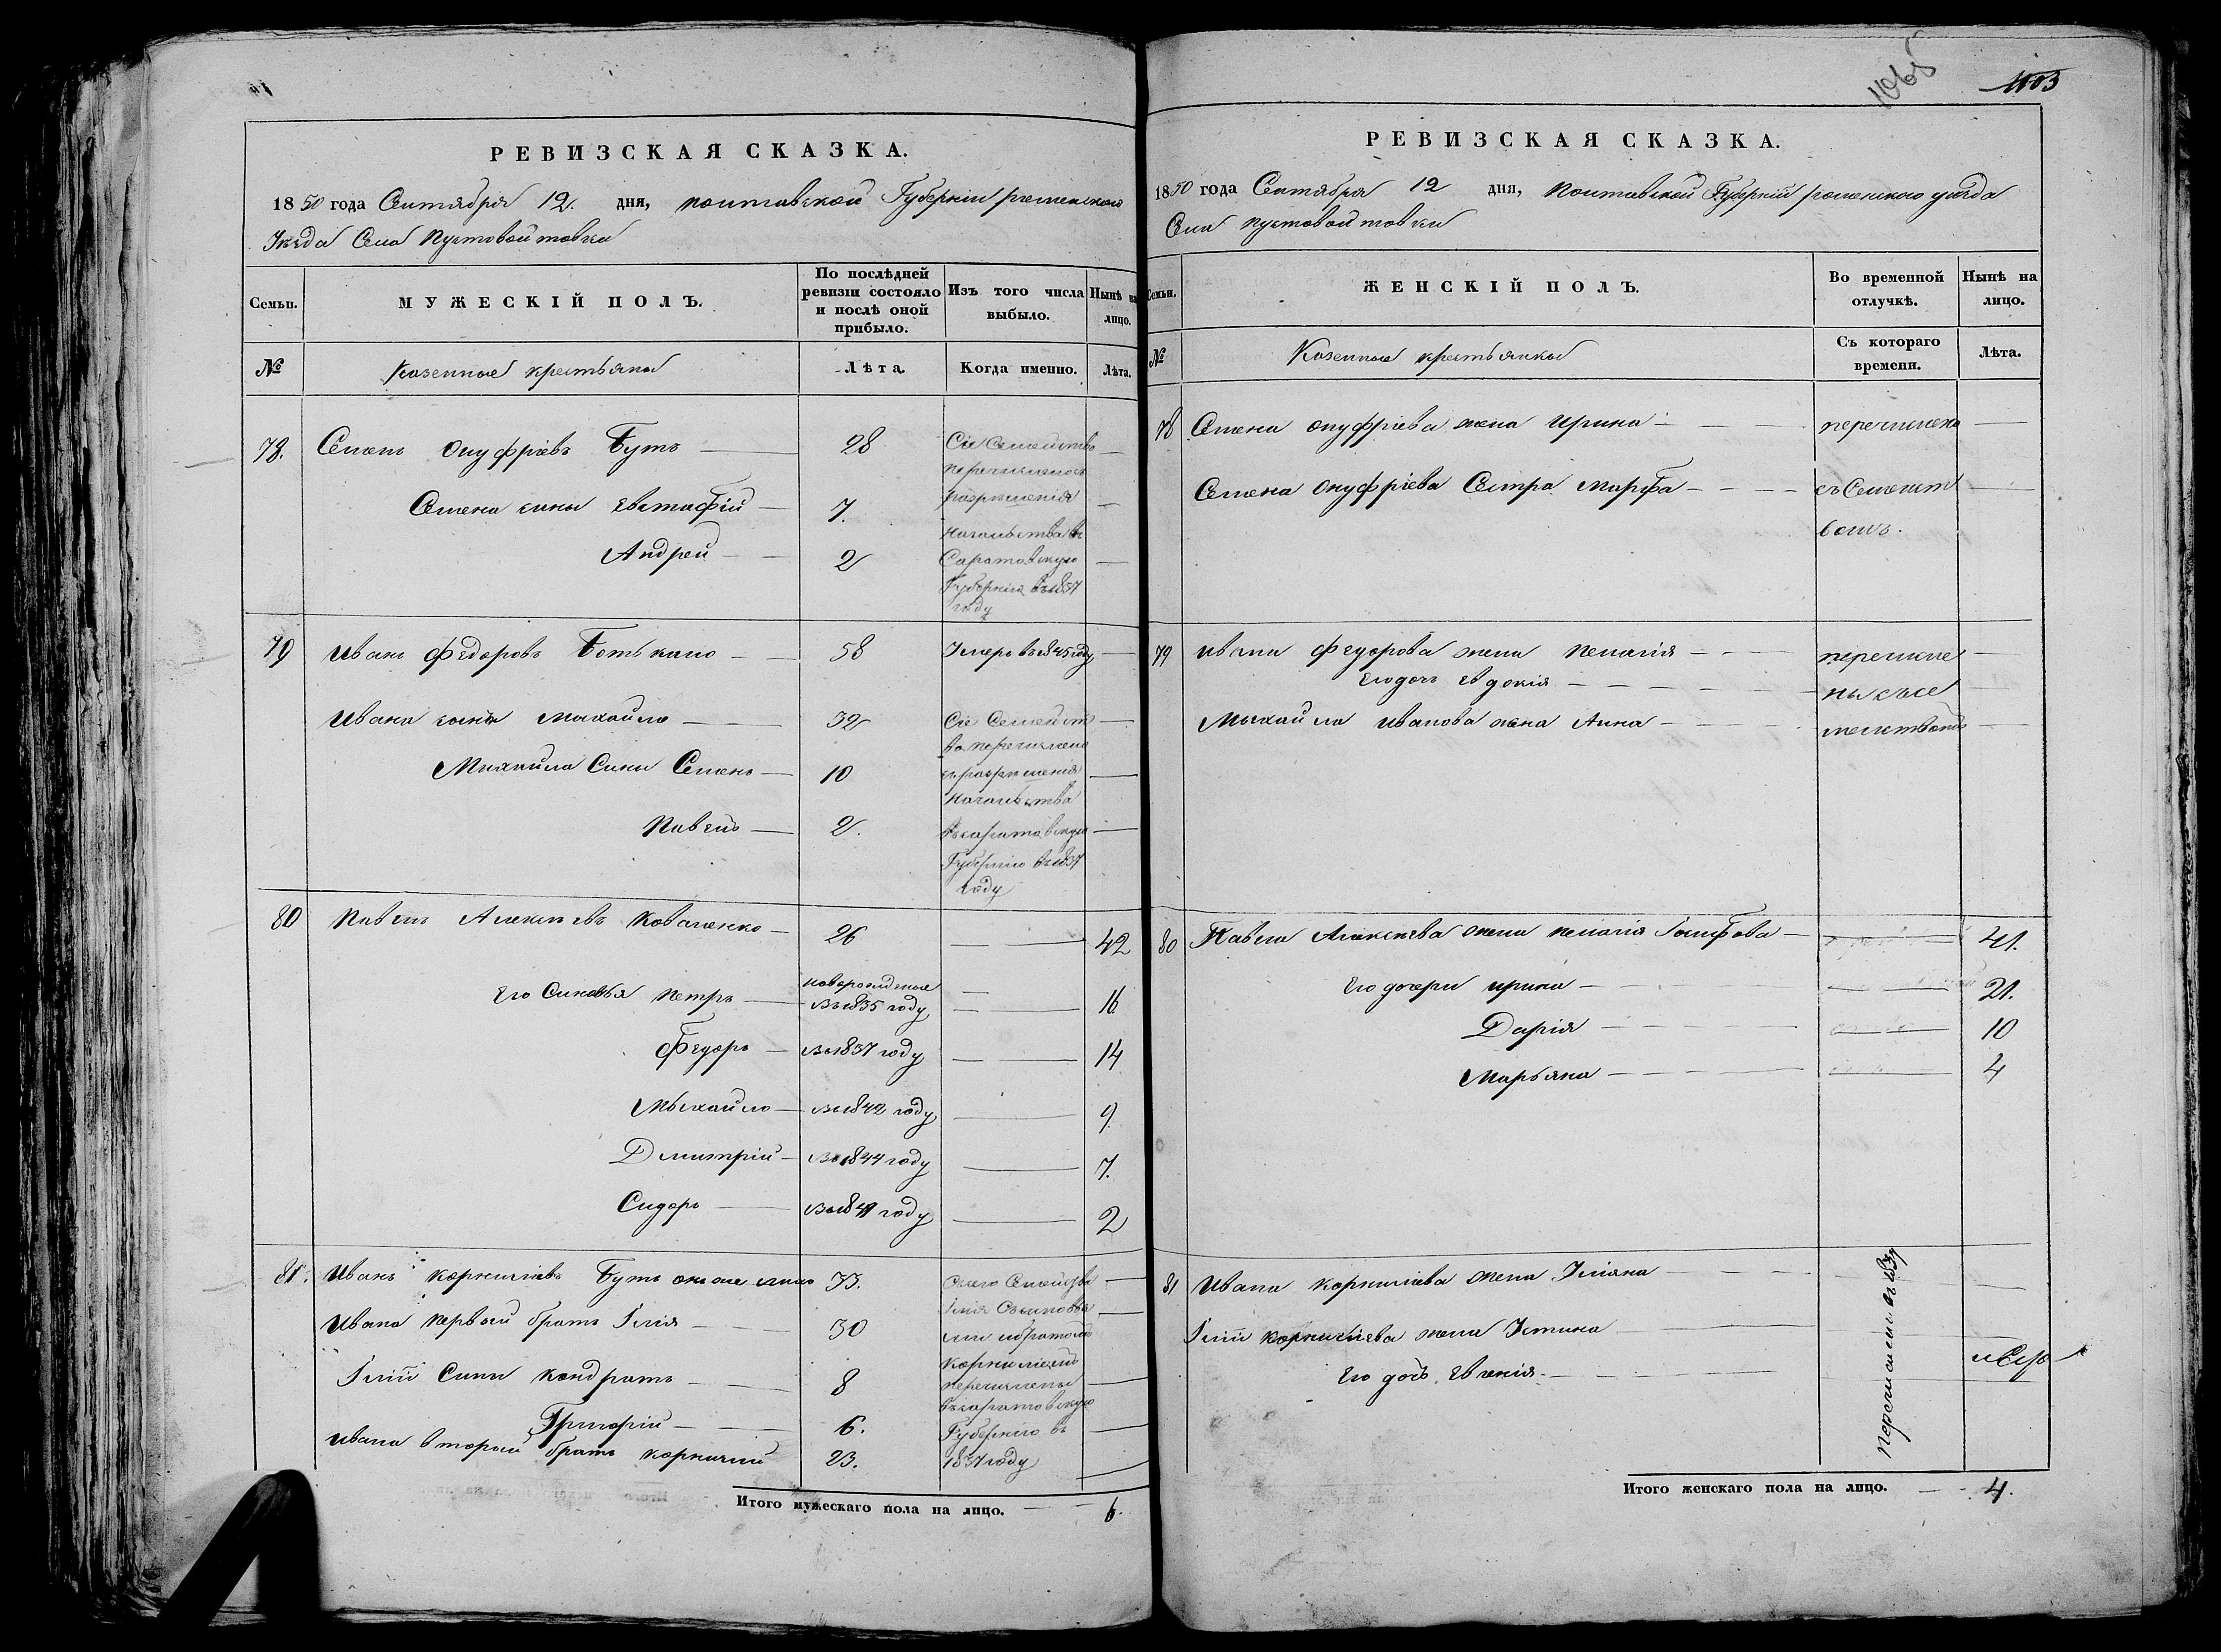 РЕВИЗСКАЯ СКАЗКА.
1850 года Сентября 12. дня, полтавской Губерніи роменского
Уезда Села Пустовойтовки
Семьи.
МУЖЕСКІЙ ПОЛЪ.
По послѣдней ревизіи состояло и послѣ оной прибыло.
Изъ того числа выбыло.
Нынѣ на лицо.
№
Казенные крестьяны
Лѣта.
Когда именно.
Лѣта.
78. Семенъ Онуфріевъ Бутъ — 28 Сіе Семейство
перечислено съ
Семена сины Евстафій — 7. разрешенія
начальства въ
Андрей — 2 Саратовскую
Губернію въ 1837
году
79 Иванъ Федоровъ Ботвино — 58 Умеръ въ 1845 году —
Ивана сынъ Михайло — 32 Сіе Семейст —
во перечислено
Михайла Сины Семенъ — 10 съ разрешенія —
начальства
Павелъ — 2. въ саратовскую —
Губернію въ 1837
году
80 Павелъ Алексеевъ Коваленко — 26 — 42
Его Синовья Петръ — новорожденые въ 1835 году — 16
Федоръ — въ 1837 году — 14
Михайло — въ 1842 году — 9.
Дмитрій — въ 1844 году — 7.
Сидоръ — въ 1849 году — 2
81. Иванъ Корниліевъ Бутъ 33.
Ивана первый братъ Илія — 30
Иліи Сины Кондратъ — 8
Григорій — 6.
Ивана второй братъ Корнилій 23.
Корниліемъ
перечислены
въ саратовскую
Губернію въ
1837 году
Итого мужескаго пола на лицо. — 6.
1065
1103
РЕВИЗСКАЯ СКАЗКА.
1850 года Сентября 12 дня, Полтавской Губерніи роменского уезда
Села пустовойтовки
Семьи.
ЖЕНСКІЙ ПОЛЪ.
Во временной отлучкѣ.
Нынѣ на лицо.
№
Казенные крестьянки
Съ котораго времени.
Лѣта.
78 Семена онуфріева жена Ирина — перечислена —
Семена Онуфріева Сестра Марфа — съ Семейст —
вомъ.
79 Ивана Федорова жена Пелагія — перечисле —
Его дочь Евдокія — ны съ се —
Михайла Иванова жена Анна — мействомъ —
80 Павла Алексеева жена пелагія Іосифова — 41.
Его дочери Ирина — 21.
Дарія — 10
Марьяна — 4
81 Ивана Корниліева жена Уліяна —
Иліи корниліева жена Устина —
Его дочь Евгенія. —
Перечислены въ 1837
Итого женскаго пола на лицо. — 4.